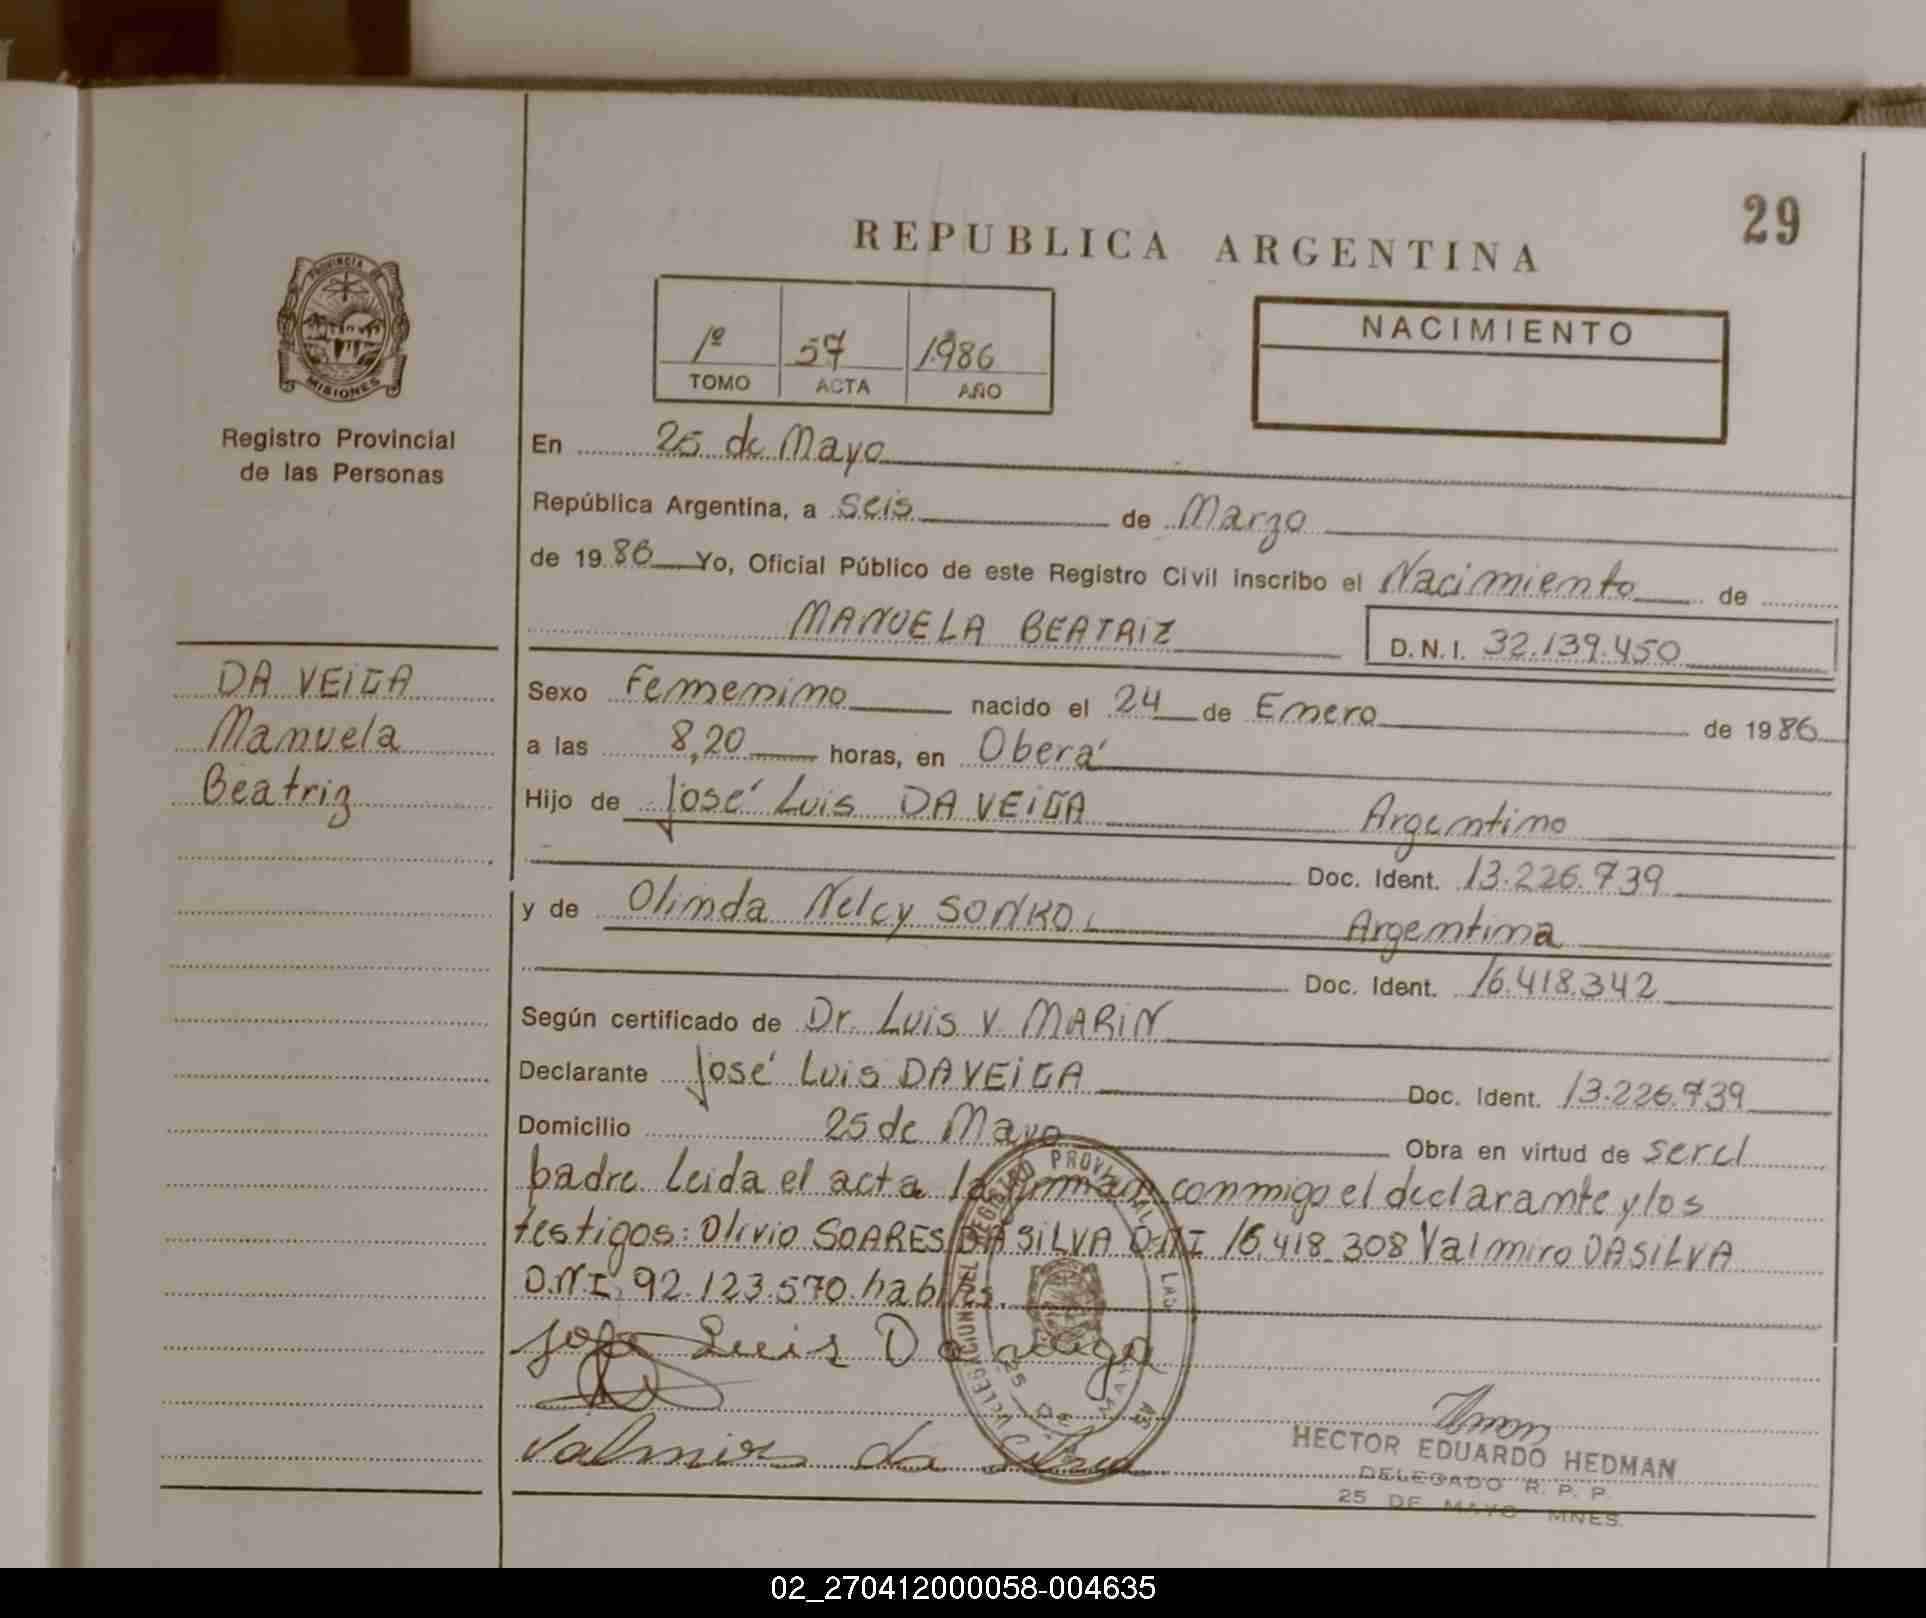 29
REPUBLICA ARGENTINA
PROVINCIA DE
MISIONES
Registro Provincial
de las Personas
1º 57 1986
TOMO ACTA AÑO
NACIMIENTO
En 25 de Mayo
República Argentina, a seis de Marzo
de 1986 Yo, Oficial Público de este Registro Civil inscribo el Nacimiento de
MANUELA BEATRIZ D.N.I. 32.139.450
DA VEIGA
Manuela
Beatriz
Sexo Femenino nacido el 24 de Enero de 1986
a las 8,20 horas, en Oberá
Hijo de José Luis DA VEIGA Argentino
Doc. Ident. 13.226.739
y de Olinda Nelcy SONKO Argentina
Doc. Ident. 16.418.342
Según certificado de Dr. Luis V. MARIN
Declarante José Luis DA VEIGA Doc. Ident. 13.226.739
Domicilio 25 de Mayo Obra en virtud de ser el
padre Leida el acta la firman conmigo el declarante y los
testigos: Olivio SOARES DA SILVA D.N.I 16.418.308 Valmiro DASILVA
D.N.I. 92.123.570 habiles.
José Luis Da Veiga
Valmiro da Silva
HECTOR EDUARDO HEDMAN
DELEGADO R. P. P.
25 DE MAYO MNES.
02_270412000058-004635